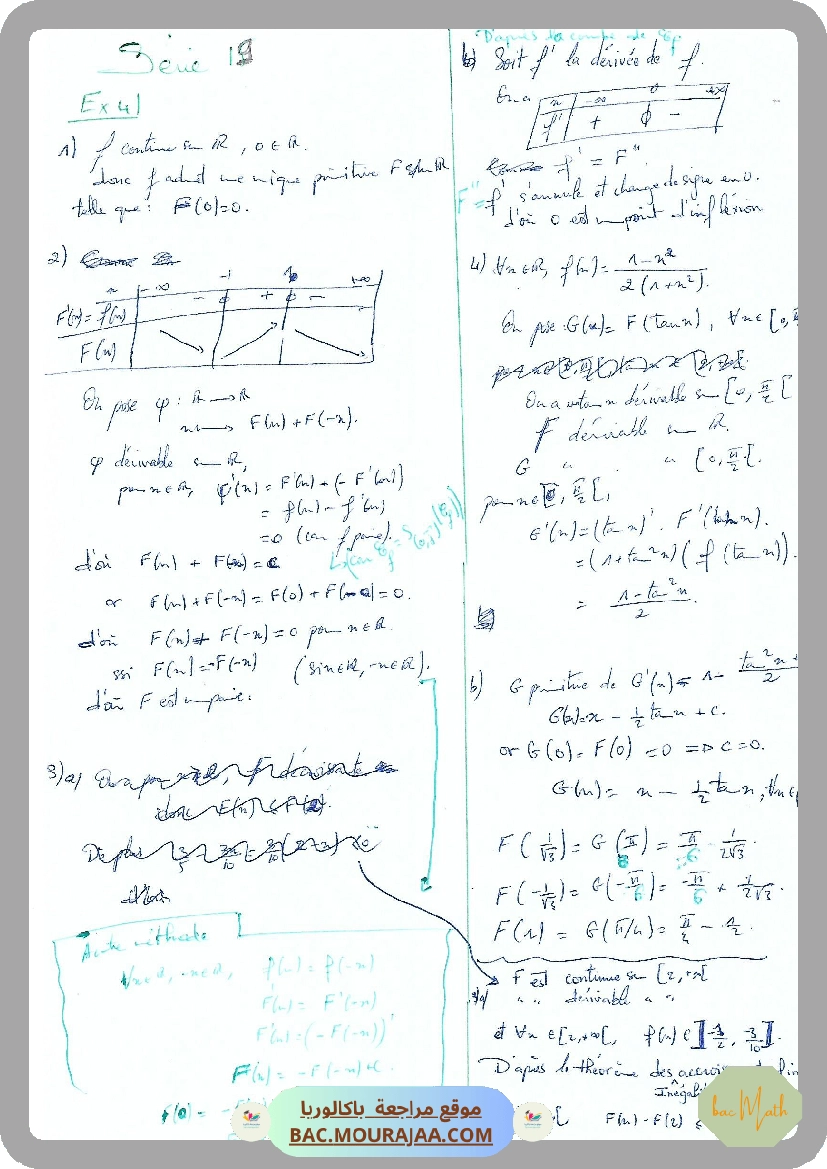 Série 19
Ex 4)
1) f continue sur ℝ, 0 ∈ ℝ.
donc f admet une unique primitive F sur ℝ
telle que : F(0)=0.
2)
x -∞ -1 1 +∞
F'(x) = f(x) - 0 + 0 -
F(x)
On pose φ : ℝ → ℝ
x ↦ F(x) + F(-x).
φ dérivable sur ℝ,
pour x∈ℝ, φ'(x) = F'(x) + (-F'(-x))
= f(x) - f(x)
= 0 (car f paire).
d'où F(x) + F(-x) = c
or F(x) + F(-x) = F(0) + F(-0) = 0.
d'où F(x) + F(-x) = 0 pour x∈ℝ.
ssi F(x) = -F(-x) (si x∈ℝ, -x∈ℝ).
d'où F est impaire.
3) a)
Autre méthode:
∀x∈ℝ, -x∈ℝ, f(x) = f(-x)
F'(x) = F'(-x)
F'(x) = (-F(-x))'
F(x) = -F(-x) + c.
D'après la courbe de
b) Soit f' la dérivée de f.
On a
x -∞ 0 +∞
f' + 0 -
f' = F''.
F'' = f' s'annule et change de signe en 0.
d'où 0 est un point d'inflexion
4) ∀x∈ℝ, f(x) = (1-x²)/(2(1+x²)).
On pose : G(x) = F(tan x), ∀x∈[0,
On a x↦tan x dérivable sur [0, π/2[
F dérivable sur ℝ.
G " " " [0, π/2[.
pour x∈[0, π/2[,
G'(x) = (tan x)' . F'(tan x).
= (1+tan²x)(f(tan x)).
= (1-tan²x)/2.
b) G primitive de G'(x) = 1 -
G(x) = x - 1/2 tan x + c.
or G(0) = F(0) = 0 => c = 0.
G(x) = x - 1/2 tan x,
F(1/√3) = G(π/6) = π/6 - 1/2√3.
F(-1/√3) = G(-π/6) = -π/6 + 1/2√3.
F(1) = G(π/4) = π/4 - 1/2.
F est continue sur [2,+∞[
3/a) " " dérivable " "
et ∀x∈[2,+∞[, f(x) ∈ ]-1/2, -3/10].
D'après le théorème des
F(x) - F(2) ≤
موقع مراجعة باكالوريا
BAC.MOURAJAA.COM
bac Math